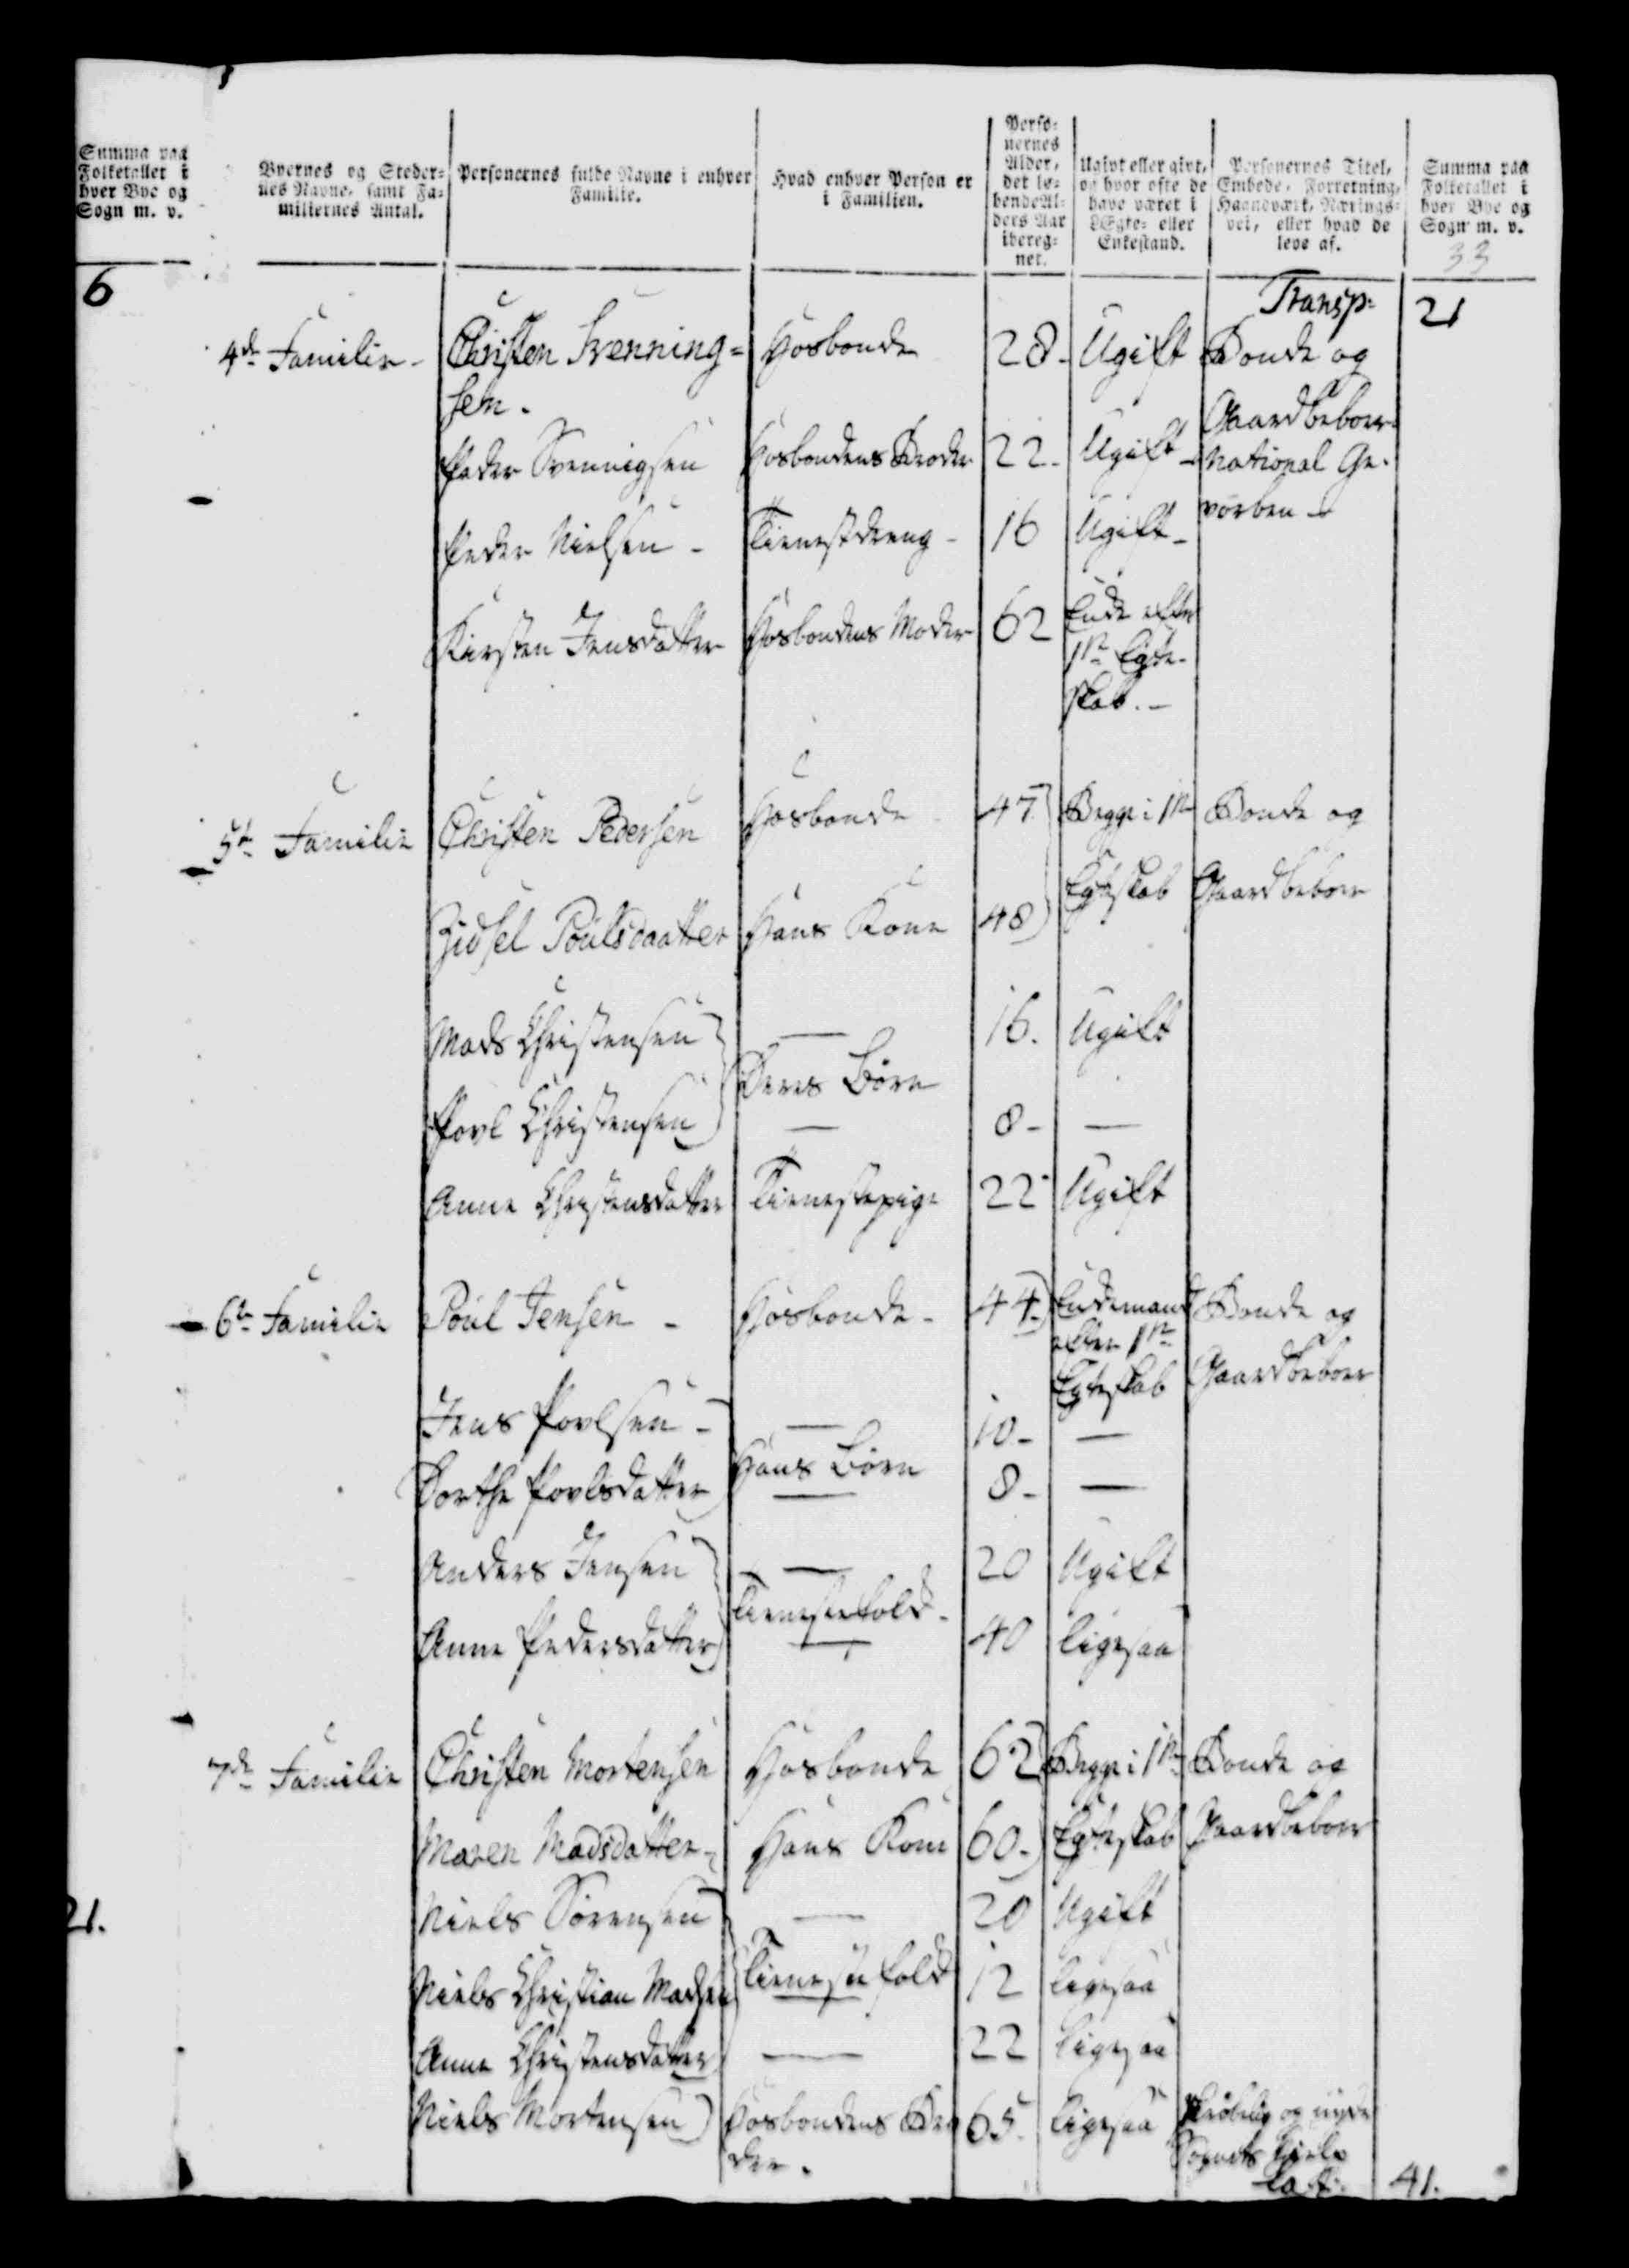 Summa paa Folketallet i hver Bye og Sogn m. v.
Byernes og Steder-nes Navne, samt Fa-miliernes Antal.
Personernes fulde Navne i enhver Familie.
Hvad enhver Person er i Familien.
Perso-nernes Alder, det lø-bende Al-ders Aar ibereg-net.
Ugivt eller givt, og hvor ofte de have været i Ægte- eller Enkestand.
Personernes Titel, Embede, Forretning, Haandværk, Nærings-vei, eller hvad de leve af.
Summa paa Folketallet i hver Bye og Sogn m. v.
33
6
Transp: 21
4de Familie - Christen Svenning= Hosbonde 28 - Ugift Bonde og
sen. Gaardbeboer
Peder Svennigsen Hosbondens Broder 22 - Ugift - National Ge-
vorben -
Peder Nielsen - Tienestdreng - 16 Ugift -
Kirsten Jensdatter Hosbondens Moder 62 Enke efter
1ste Egte-
skab. -
5te Familie Christen Pedersen Hosbonde 47 Begge i 1ste Bonde og
Egteskab Gaardbeboer
Zidsel Poulsdaatter Hans Kone 48
Mads Christensen 16. Ugift
Deres Børn
Povl Christensen 8 - —
Anne Christensdatter Tienestepige 22 Ugift
6te Familie Poul Jensen - Hosbonde - 44 Enkemand Bonde og
efter 1ste
Egteskab Gaardbeboer
Jens Povlsen - 10 - —
Hans Børn
Dorthe Povlsdatter 8 - —
Anders Jensen 20 Ugift
Tienestefolk -
Anne Pedersdatter 40 ligesaa
7de Familie Christen Mortensen Hosbonde 62 Begge i 1ste Bonde og
Maren Madsdatter - Hans Kone 60 - Egteskab Gaardbeboer
21. Niels Sørensen — 20 Ugift
Niels Christian Madsen Tienestefolk 12 ligesaa
Anne Christensdatter — 22 ligesaa
Niels Mortensen Hosbondens Bro 65 ligesaa skrøbelig og nyder
der. Sognets Hielp
La t: 41.